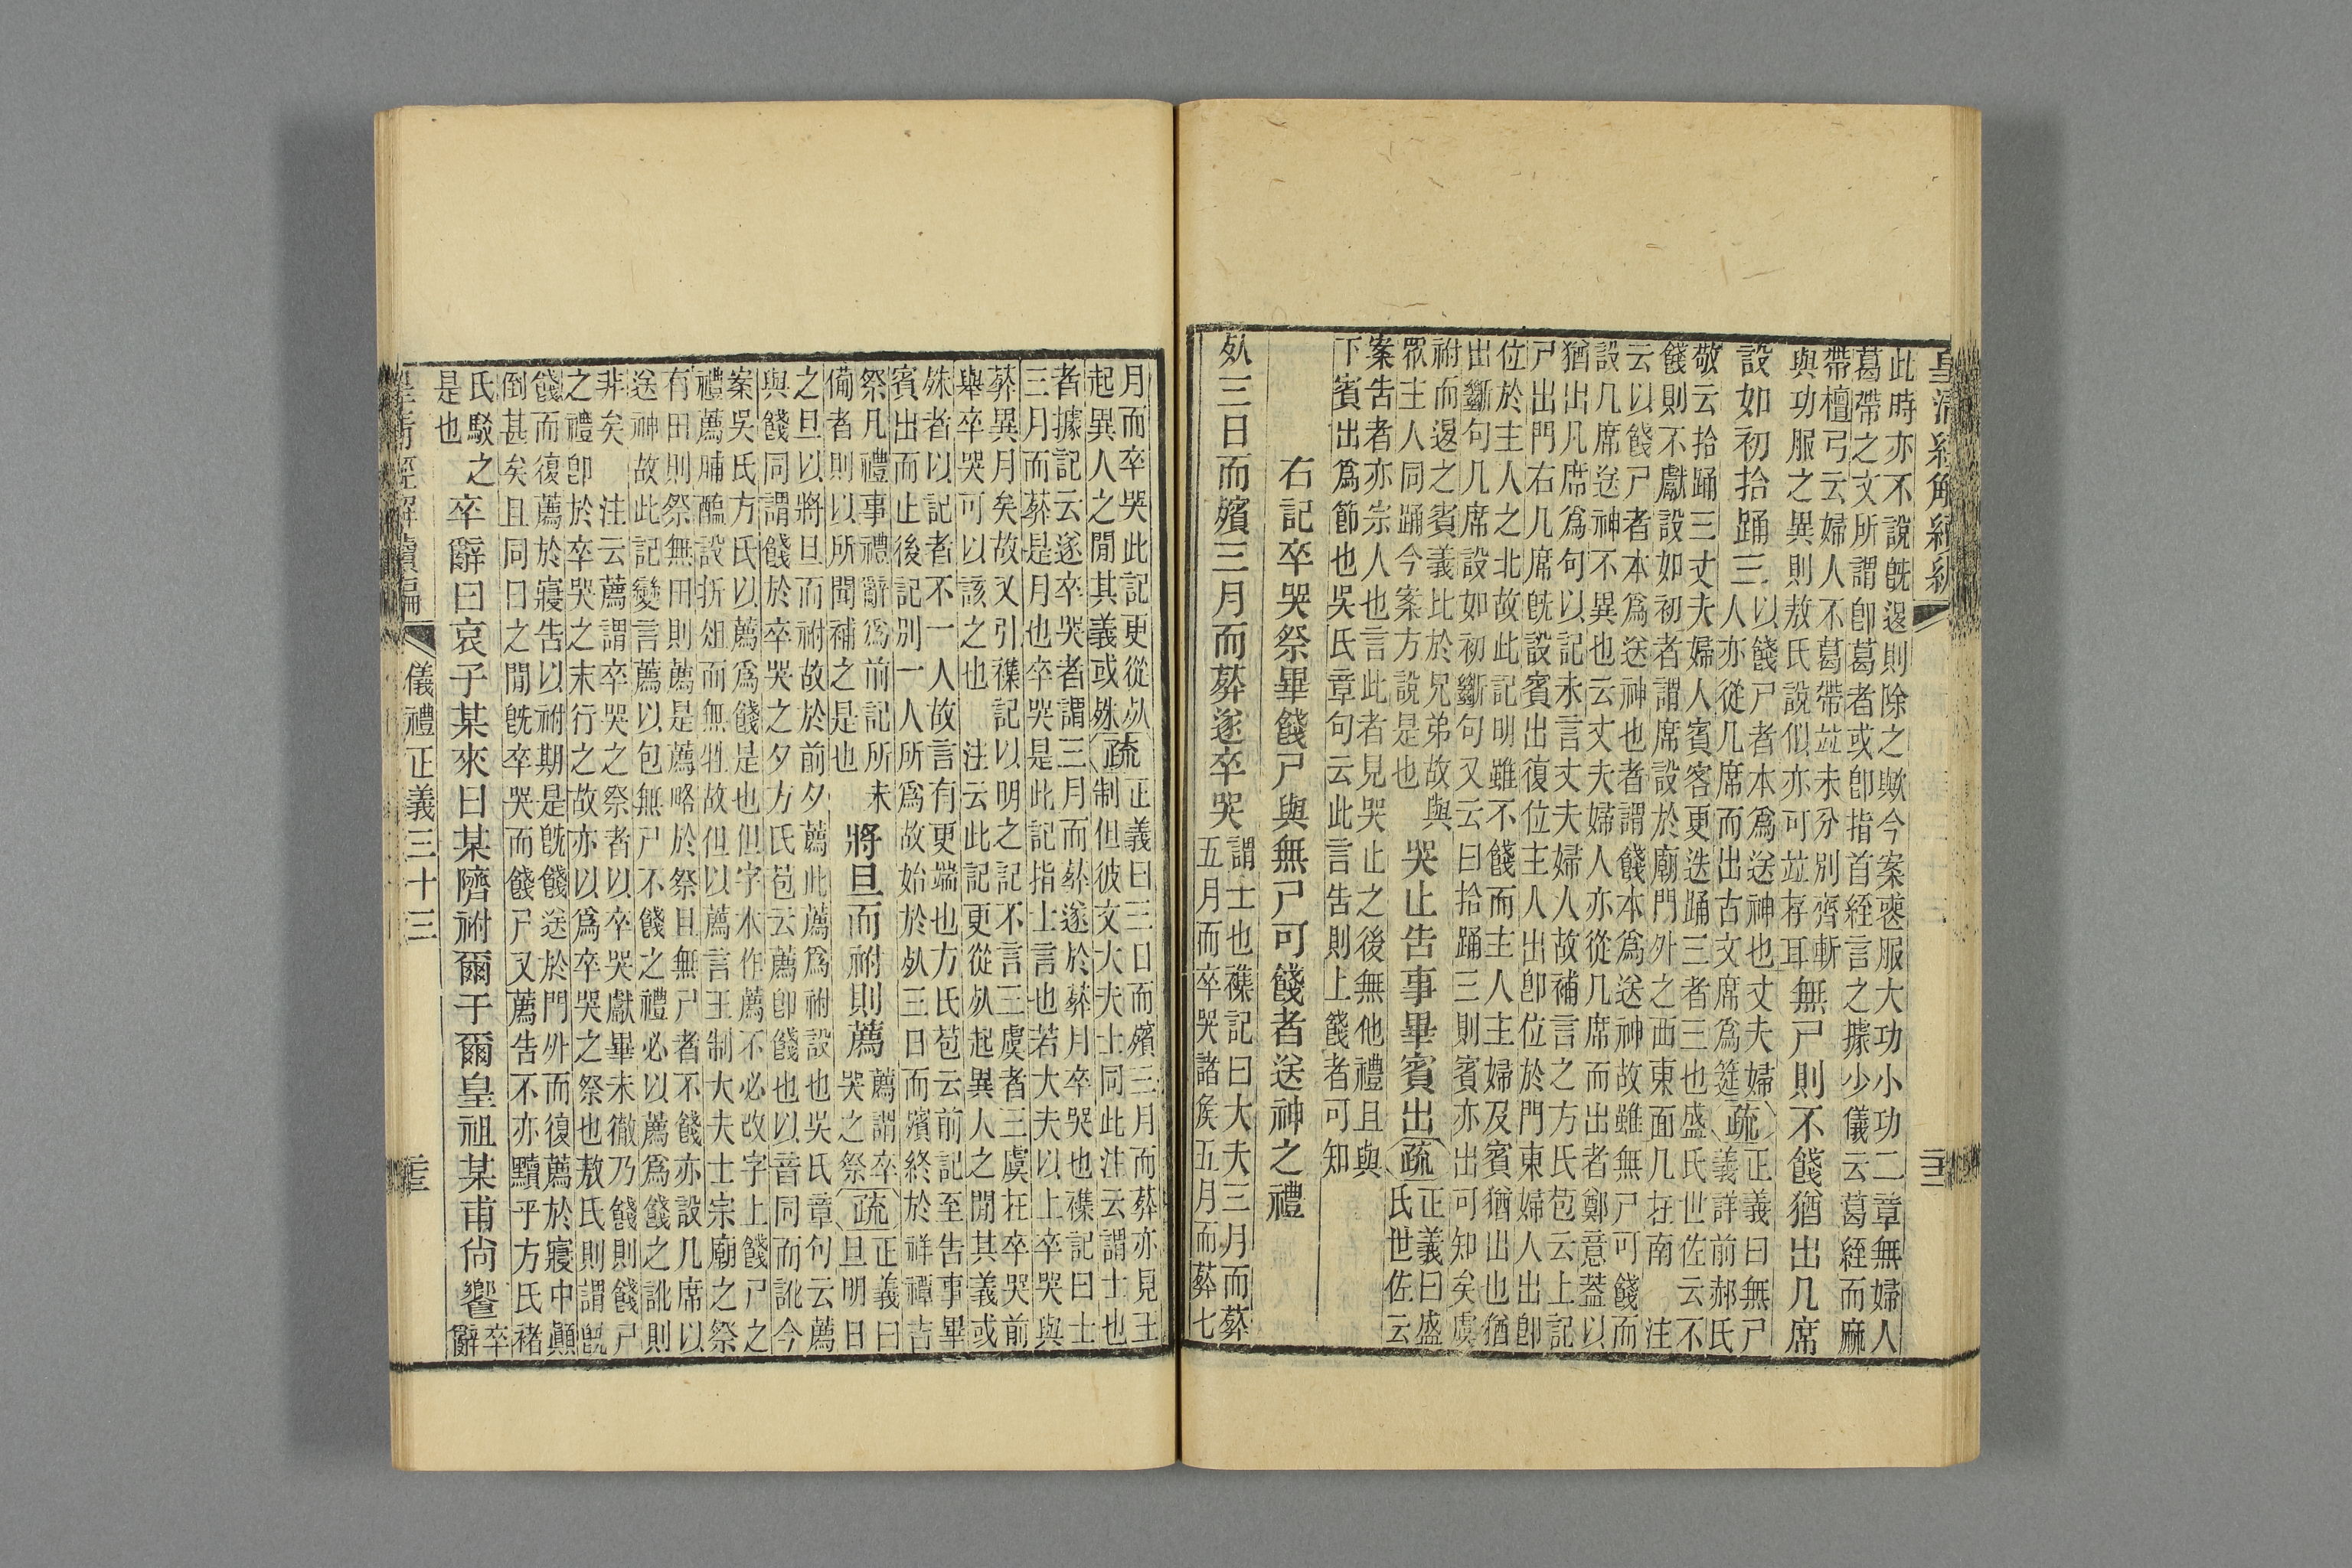 此時亦不說旣退則除之歟今案䘮服大功小功二章無婦人
葛帶之文所謂卽葛者或卽指首絰言之據少儀云葛絰而麻
帶檀弓云婦人不葛帶竝未分別齊斬
與功服之異則敖氏說似亦可竝存耳
無尸則不餞猶出几席
設如初拾踊三
以餞尸者本爲送神也丈夫婦
人亦從几席而出古文席爲筵
疏
正義曰無尸
義詳前郝氏
敬云拾踊三丈夫婦人賓客更迭踊三者三也盛氏世佐云不
餞則不獻設如初者謂席設於廟門外之西東面几在南 注
云以餞尸者本爲送神也者謂餞本爲送神故雖無尸可餞而
設几席送神不異也云丈夫婦人亦從几席而出者鄭意蓋以
猶出几席爲句以記未言丈夫婦人故補言之方氏苞云上記
尸出門右几席旣設賓出復位主人出卽位於門東婦人出卽
位於主人之北故此記明雖不餞而主人主婦及賓猶出也猶
出斷句几席設如初斷句又云曰拾踊三則賓亦出可知矣虞
祔而退之賓義比於兄弟故與
眾主人同踊今案方說是也
哭止告事畢賓出
疏
正義曰盛
氏世佐云
案告者亦宗人也言此者見哭止之後無他禮且與
下賓出爲節也吳氏章句云此言告則上餞者可知
右記卒哭祭畢餞尸與無尸可餞者送神之禮
死三日而殯三月而葬遂卒哭
謂士也襍記曰大夫三月而葬
五月而卒哭諸侯五月而葬七
月而卒哭此記更從死
起異人之閒其義或殊
疏
正義曰三日而殯三月而葬亦見王
制但彼文大夫士同此注云謂士也
者據記云遂卒哭者謂三月而葬遂於葬月卒哭也襍記曰士
三月而葬是月也卒哭是此記指士言也若大夫以上卒哭與
葬異月矣故又引襍記以明之記不言三虞者三虞在卒哭前
舉卒哭可以該之也 注云此記更從死起異人之閒其義或
殊者以記者不一人故言有更端也方氏苞云前記至告事畢
賓出而止後記別一人所爲故始於死三日而殯終於祥禫吉
祭凡禮事禮辭爲前記所未
備者則以所聞補之是也
將旦而祔則薦
薦謂卒
哭之祭
疏
正義曰
旦明日
之旦以將旦而祔故於前夕薦此薦爲祔設也吳氏章句云薦
與餞同謂餞於卒哭之夕方氏苞云薦卽餞也以音同而訛今
案吳氏方氏以薦爲餞是也但字本作薦不必改字上餞尸之
禮薦脯醢設折俎而無牲故但以薦言王制大夫士宗廟之祭
有田則祭無田則薦是薦略於祭且無尸者不餞亦設几席以
送神故此記變言薦以包無尸不餞之禮必以薦爲餞之訛則
非矣 注云薦謂卒哭之祭者以卒哭獻畢未徹乃餞則餞尸
之禮卽於卒哭之末行之故亦以爲卒哭之祭也敖氏則謂旣
餞而復薦於寢告以祔期是旣餞送於門外而復薦於寢中顛
倒甚矣且同日之閒旣卒哭而餞尸又薦告不亦黷乎方氏褚
氏駁之
是也
卒辭曰哀子某來日某隮祔爾于爾皇祖某甫尚饗
卒
辭
皇清經解續編 儀禮正義三十三